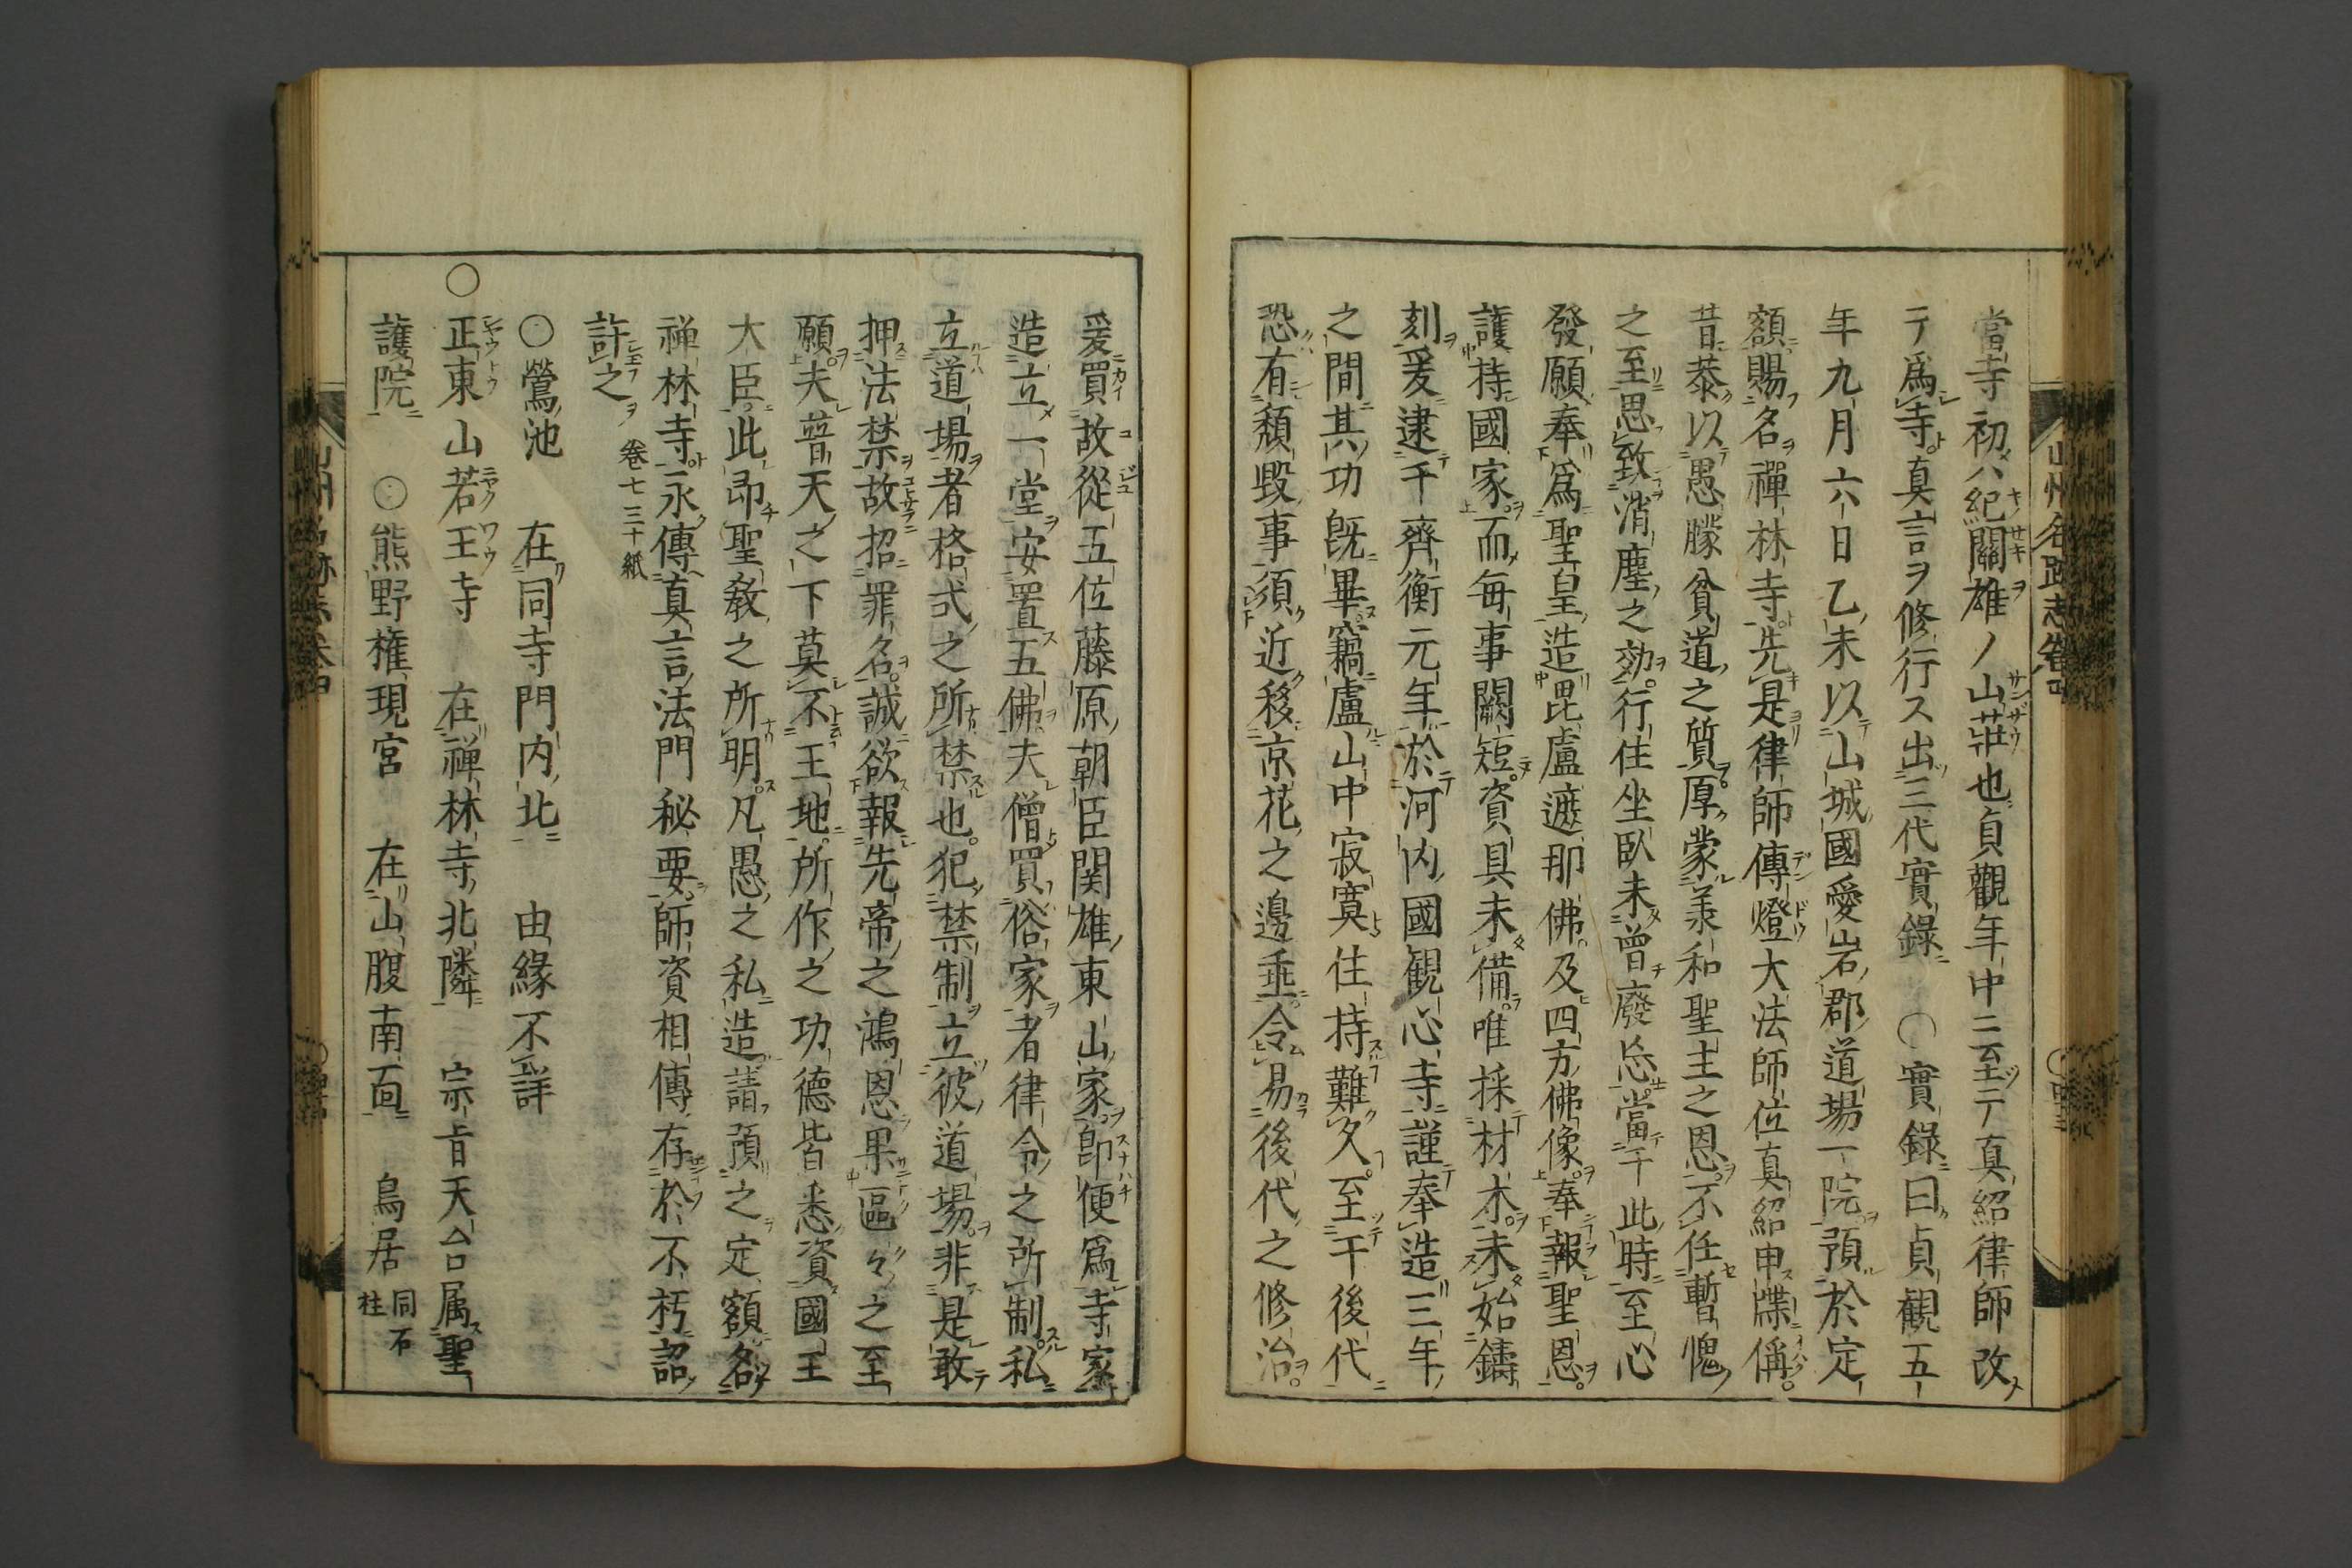 當寺初ハ紀關雄ノ山莊也貞觀年中ニ至テ真紹律師改
テ爲寺真言ヲ修行ス出三代實錄 〇實錄曰貞観五
年九月六日乙未以山城國愛岩郡道場一院預於定
額賜名禪林寺先是律師傳燈大法師位真紹申牒偁
昔忝以愚朦貧道之質厚蒙羕和聖主之恩不任暫愧
之至思致消塵之効行住坐臥未曾廢忘當于此時至心
發願奉爲聖皇造毘盧遮那佛及四方佛像奉報聖恩
護持國家而毎事闕短資具未備唯採材木未始鑄
刻爰逮于齊衡元年於河内國観心寺謹奉造三年
之間其功既畢竊盧山中寂寞住持難久至于後代
恐有頽毀事須近移京花之邊垂令易後代之修治
爰買故從五位藤原朝臣関雄東山家卽便爲寺家
造立一堂安置五佛夫僧買俗家者律令之所制私
立道場者格式之所禁也犯禁制立彼道場非是敢
押法禁故招罪名誠欲報先帝之鴻恩果區々之至
願夫普天之下莫不王地所作之功德皆悉資國王
大臣此卽聖教之所明凡愚之私造請預之定額名
禅林寺永傳真言法門秘要師資相傳存於不朽詔
許之 卷七三十紙
〇鶯池 在同寺門内北 由緣不詳
〇正東山若王寺 在禅林寺北隣 宗旨天台属聖
護院 〇熊野権現宮 在山腹南面 鳥居 同石柱
山州名跡志卷四